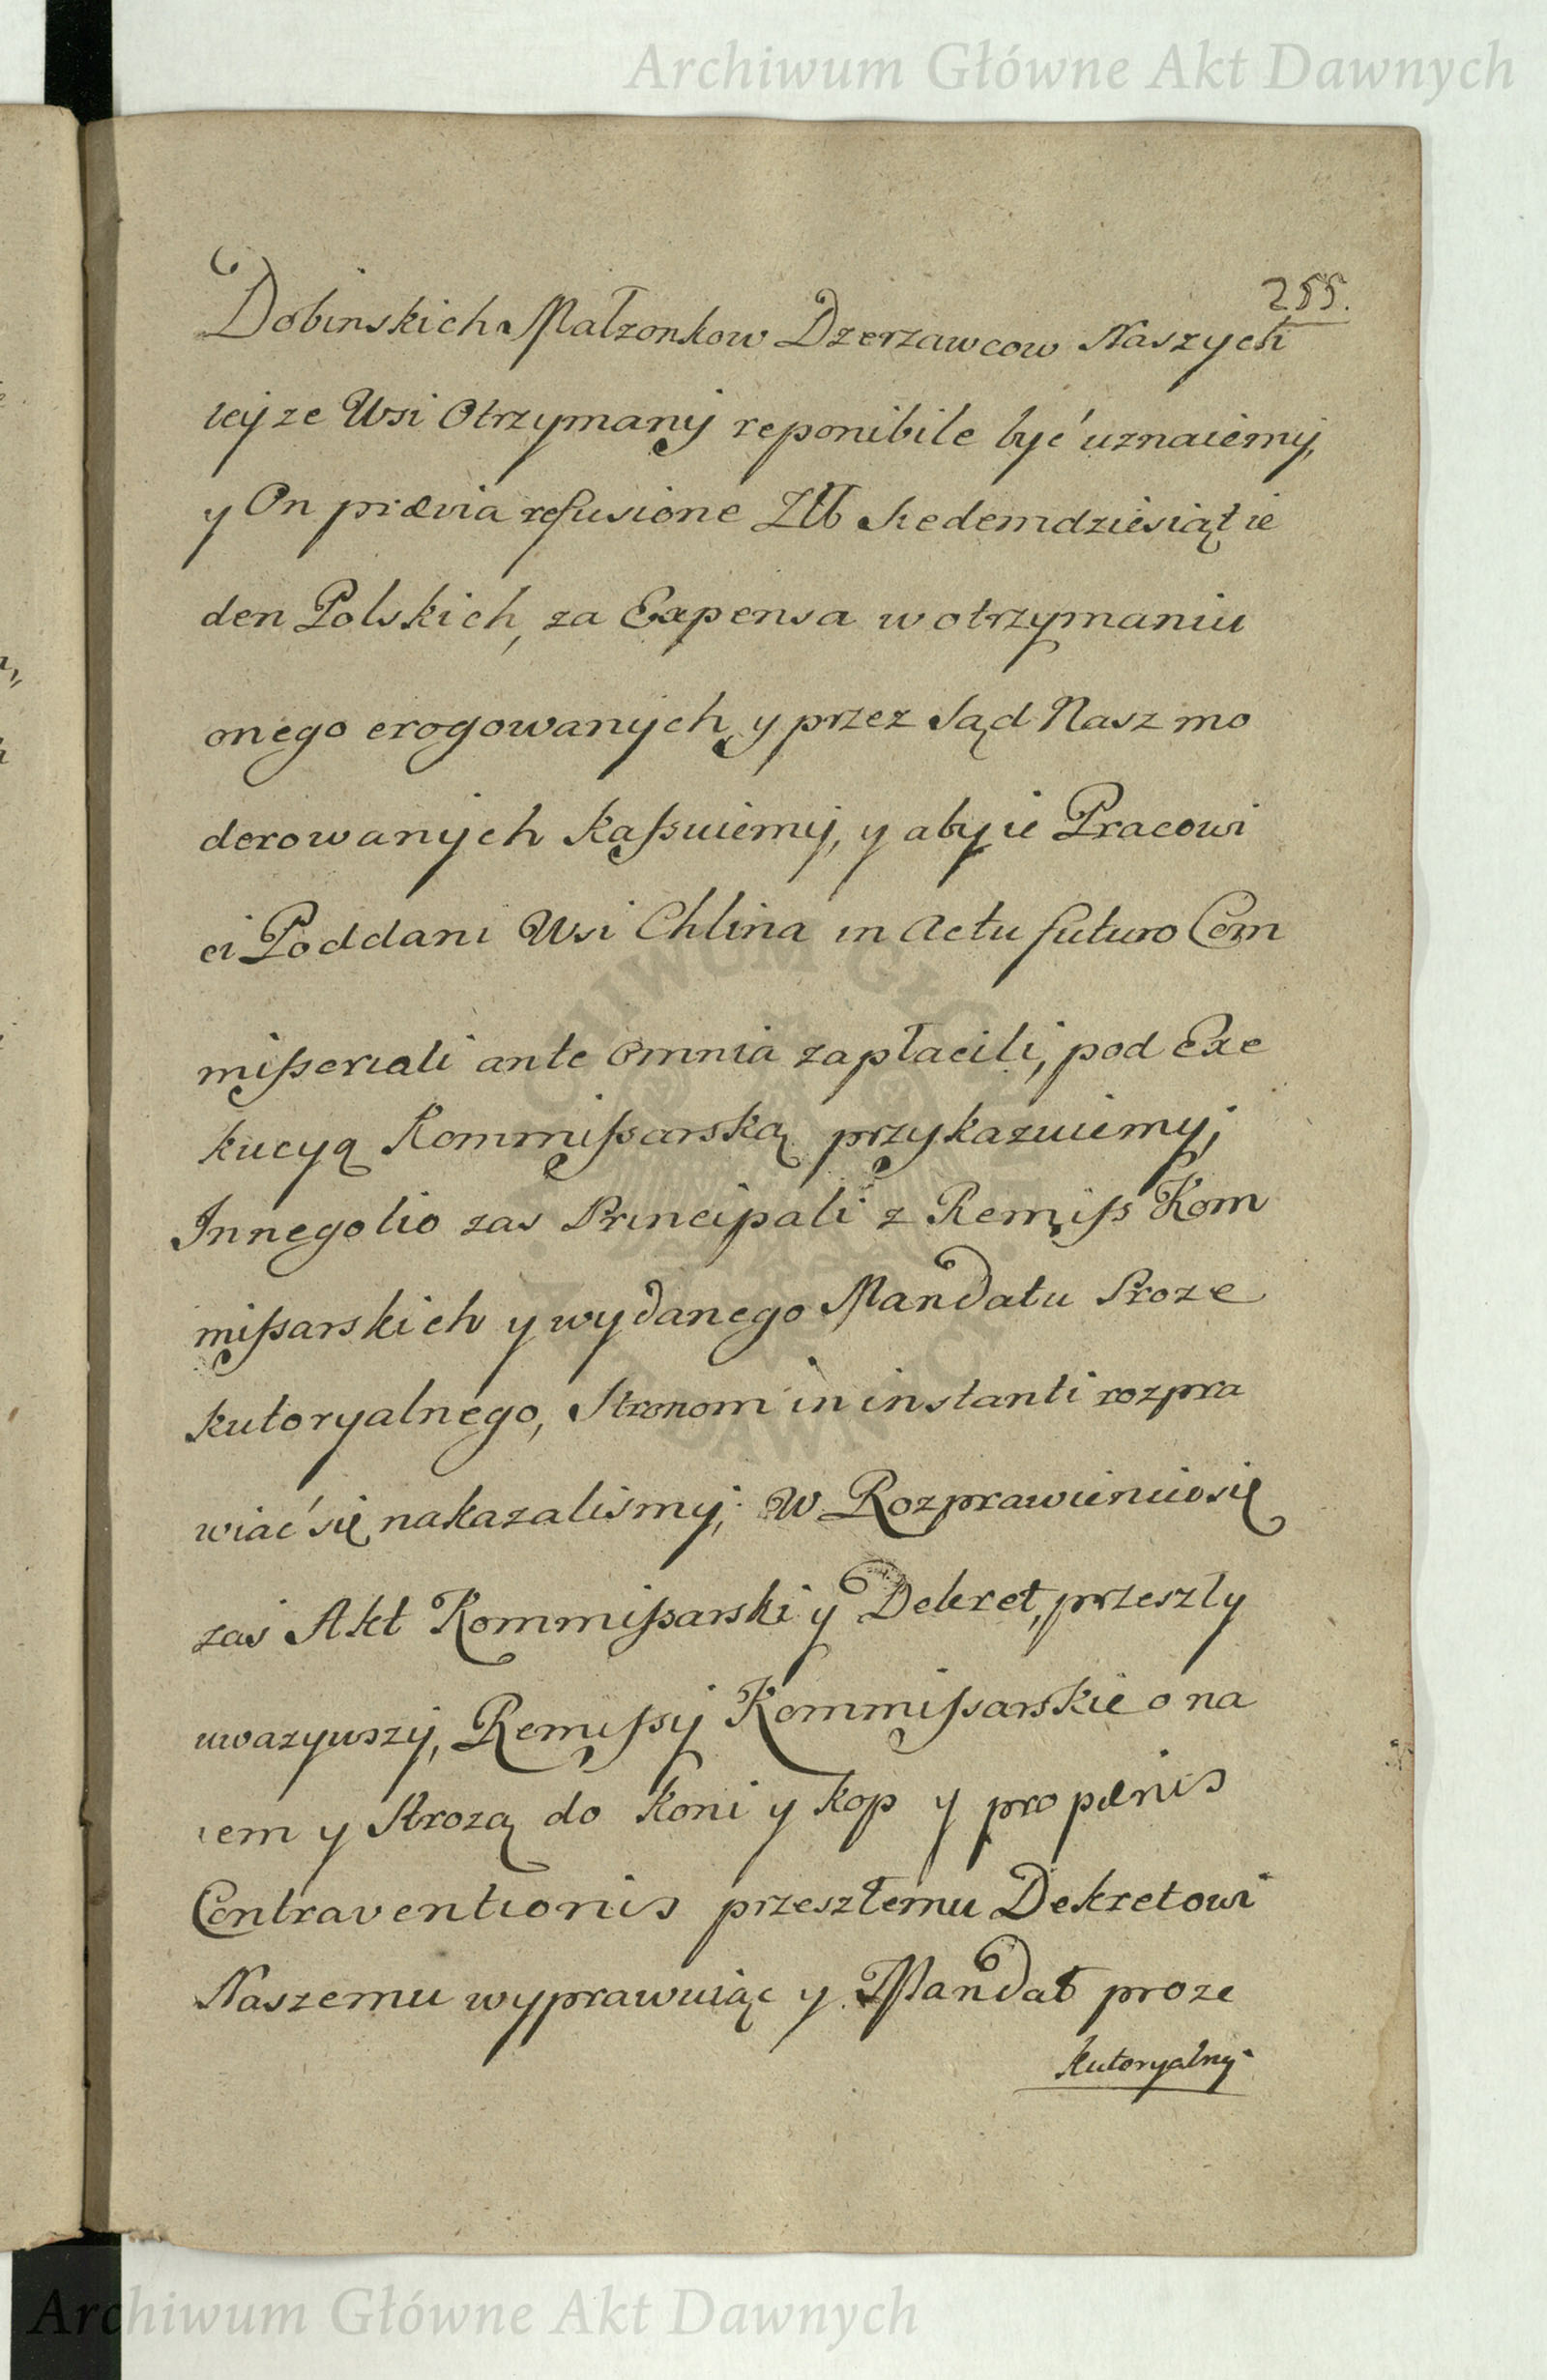 Archiwum Główne Akt Dawnych
255.
Dobinskich Małzonkow Dzerzawcow Naszych
teyze Wsi Otrzymany reponibile być uznaiemy,
y On prævia refusione Złł Siedemdziesiąt ie
den Polskich, za Expensa w otrzymaniu
onego erogowanych y przez Sąd Nasz mo
derowanych Kassuiemy, y aby ie Pracowi
ci Poddani Wsi Chlina in Actu futuro Com
misseriali ante omnia zapłacili, pod Exe
kucyą Kommissarską przykazuiemy;
In negotio zas Principali z Remiss Kom
missarskich y wydanego Mandatu Proze
kutoryalnego, Stronom in instanti rozpra
wiać się nakazalismy; W Rozprawieniu się
zas Akt Kommissarski y Dekret, przeszły
uwazywszy, Remissy Kommissarskie o na
iem y Strozą do Koni y kop y pro pœnis
Contraventionis przeszłemu Dekretowi
Naszemu wyprawuiąc y Mandat proze
kutoryalny
ARCHIWUM GŁÓWNE AKT DAWNYCH
Archiwum Główne Akt Dawnych